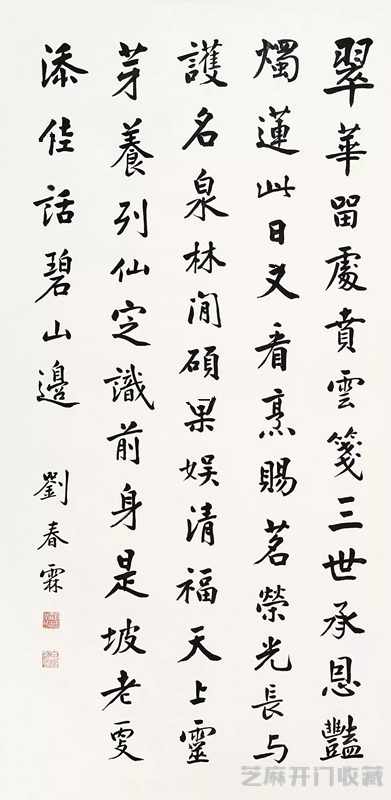 翠華留處賁雲箋三世承恩豔
燭蓮此日又看烹賜茗榮光長与
護名泉林閒碩果娛清福天上靈
芽養列仙定識前身是坡老更
添佳話碧山邊
劉春霖
芝麻开门收藏